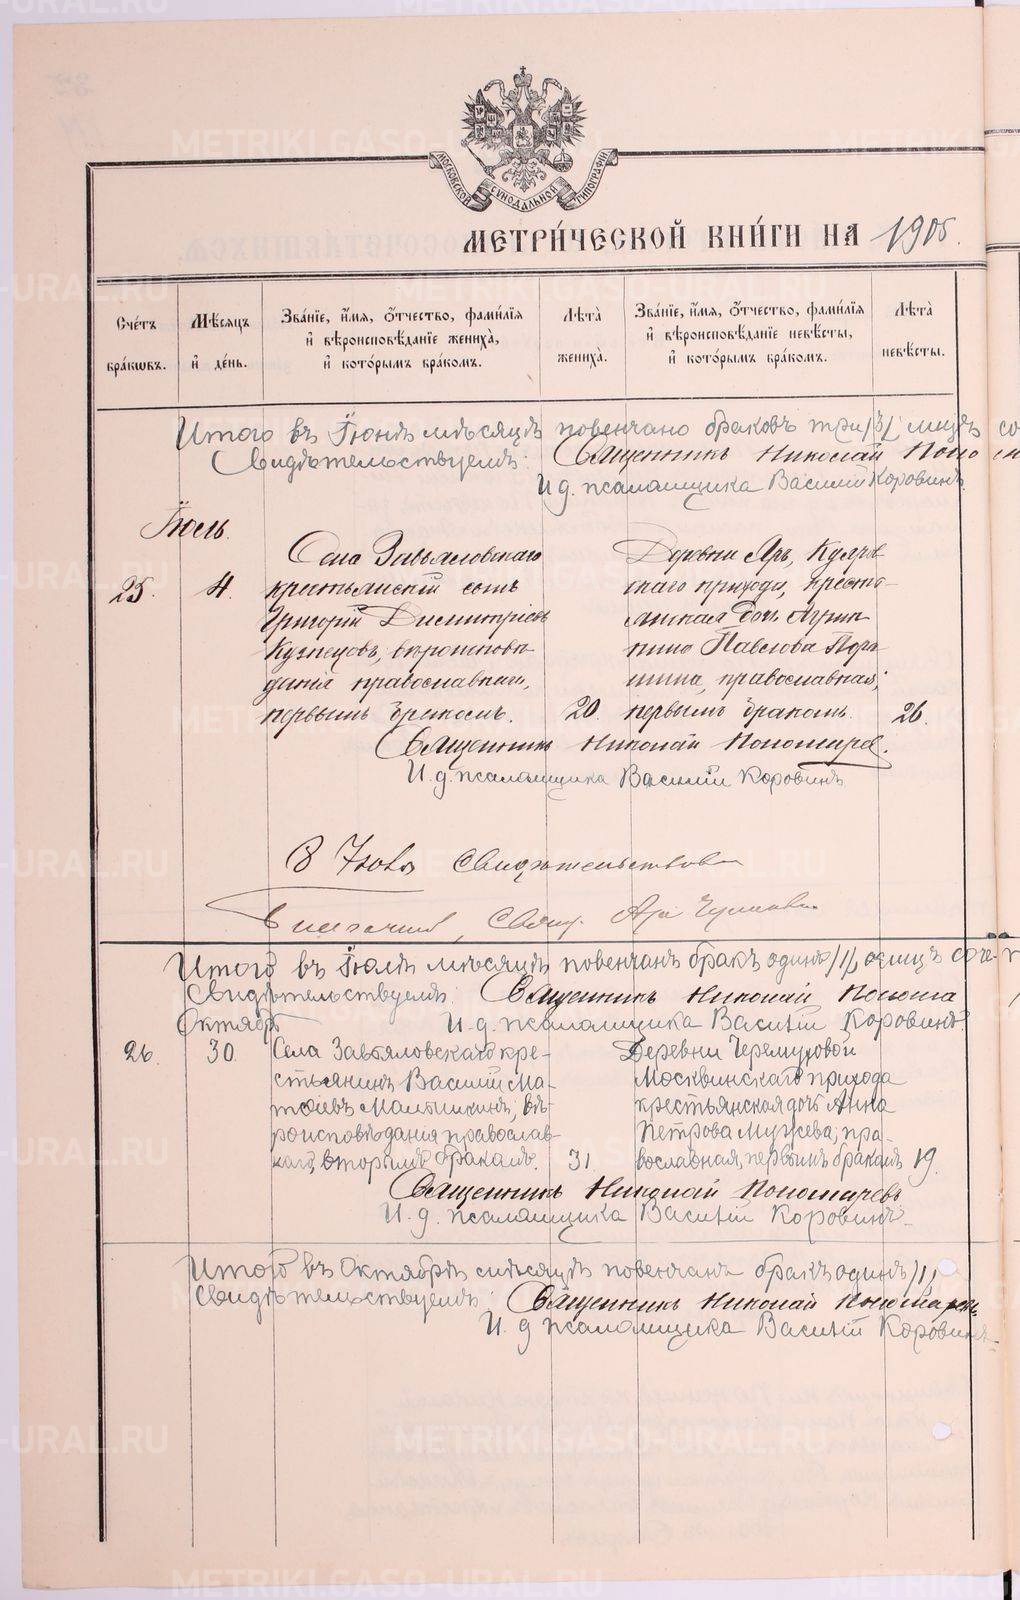 МОСКОВСКОЙ СѴНОДАЛЬНОЙ ТИПОГРАФІИ
МЕТРИ́ЧЕСКОЙ КНИ́ГИ НА 1905.
Сче́тъ бра́кѡвъ.
Мѣ́сяцъ и́ де́нь.
Зва́нїе, и́мя, ѻ́тчество, фами́лїя и́ вѣроисповѣ́данїе жениха̀, и́ кото́рымъ бра́комъ.
Лѣ́та жениха̀.
Зва́нїе, и́мя, ѻ́тчество, фами́лїя и́ вѣроисповѣ́данїе невѣ́сты, и́ кото́рымъ бра́комъ.
Лѣ́та невѣ́сты.
Итого въ Іюнѣ мѣсяцѣ повенчано браковъ три /3/ лицъ со
Свидѣтельствуемъ: Священникъ Николай Поно
И. д. псаломщика Василій Коровинъ.
Іюль.
25. 4.
Села Завьяловскаго
крестьянскій сынъ
Григорій Димитріевъ
Кузнецовъ, вѣроисповѣ
данія православнаго,
первымъ бракомъ. 20.
Деревни Яръ,
скаго прихода, крестья-
нская дочь Агрип
пина Павлова
православная,
первымъ бракомъ. 26.
Священникъ Николай Пономарев.
И. д. псаломщика Василій Коровинъ
8 Іюля свидѣтельствовалъ
Благочин, Свящ.
Итого въ Іюлѣ мѣсяцѣ повенчанъ бракъ одинъ /1/, лицъ соче-
Свидѣтельствуемъ: Священникъ Николай Понома
Октябрь И. д. псаломщика Василій Коровинъ.
26. 30.
Села Завьяловскаго кре-
стьянинъ Василій Ма-
тѳіевъ Малышкинъ, вѣ-
роисповѣданія православ-
наго, вторымъ бракомъ. 31
Деревни Черемуховой
Москвинскаго прихода
крестьянская дочь Анна
Петрова пра-
вославная, первымъ бракомъ 19.
Священникъ Николай Пономаревъ
И. д. псаломщика Василій Коровинъ
Итого въ Октябрѣ мѣсяцѣ повенчанъ бракъ одинъ /1/
Свидѣтельствуемъ: Священникъ Николай Пономарев
И. д псаломщика Василій Коровинъ
METRIKI.GASO-URAL.RU